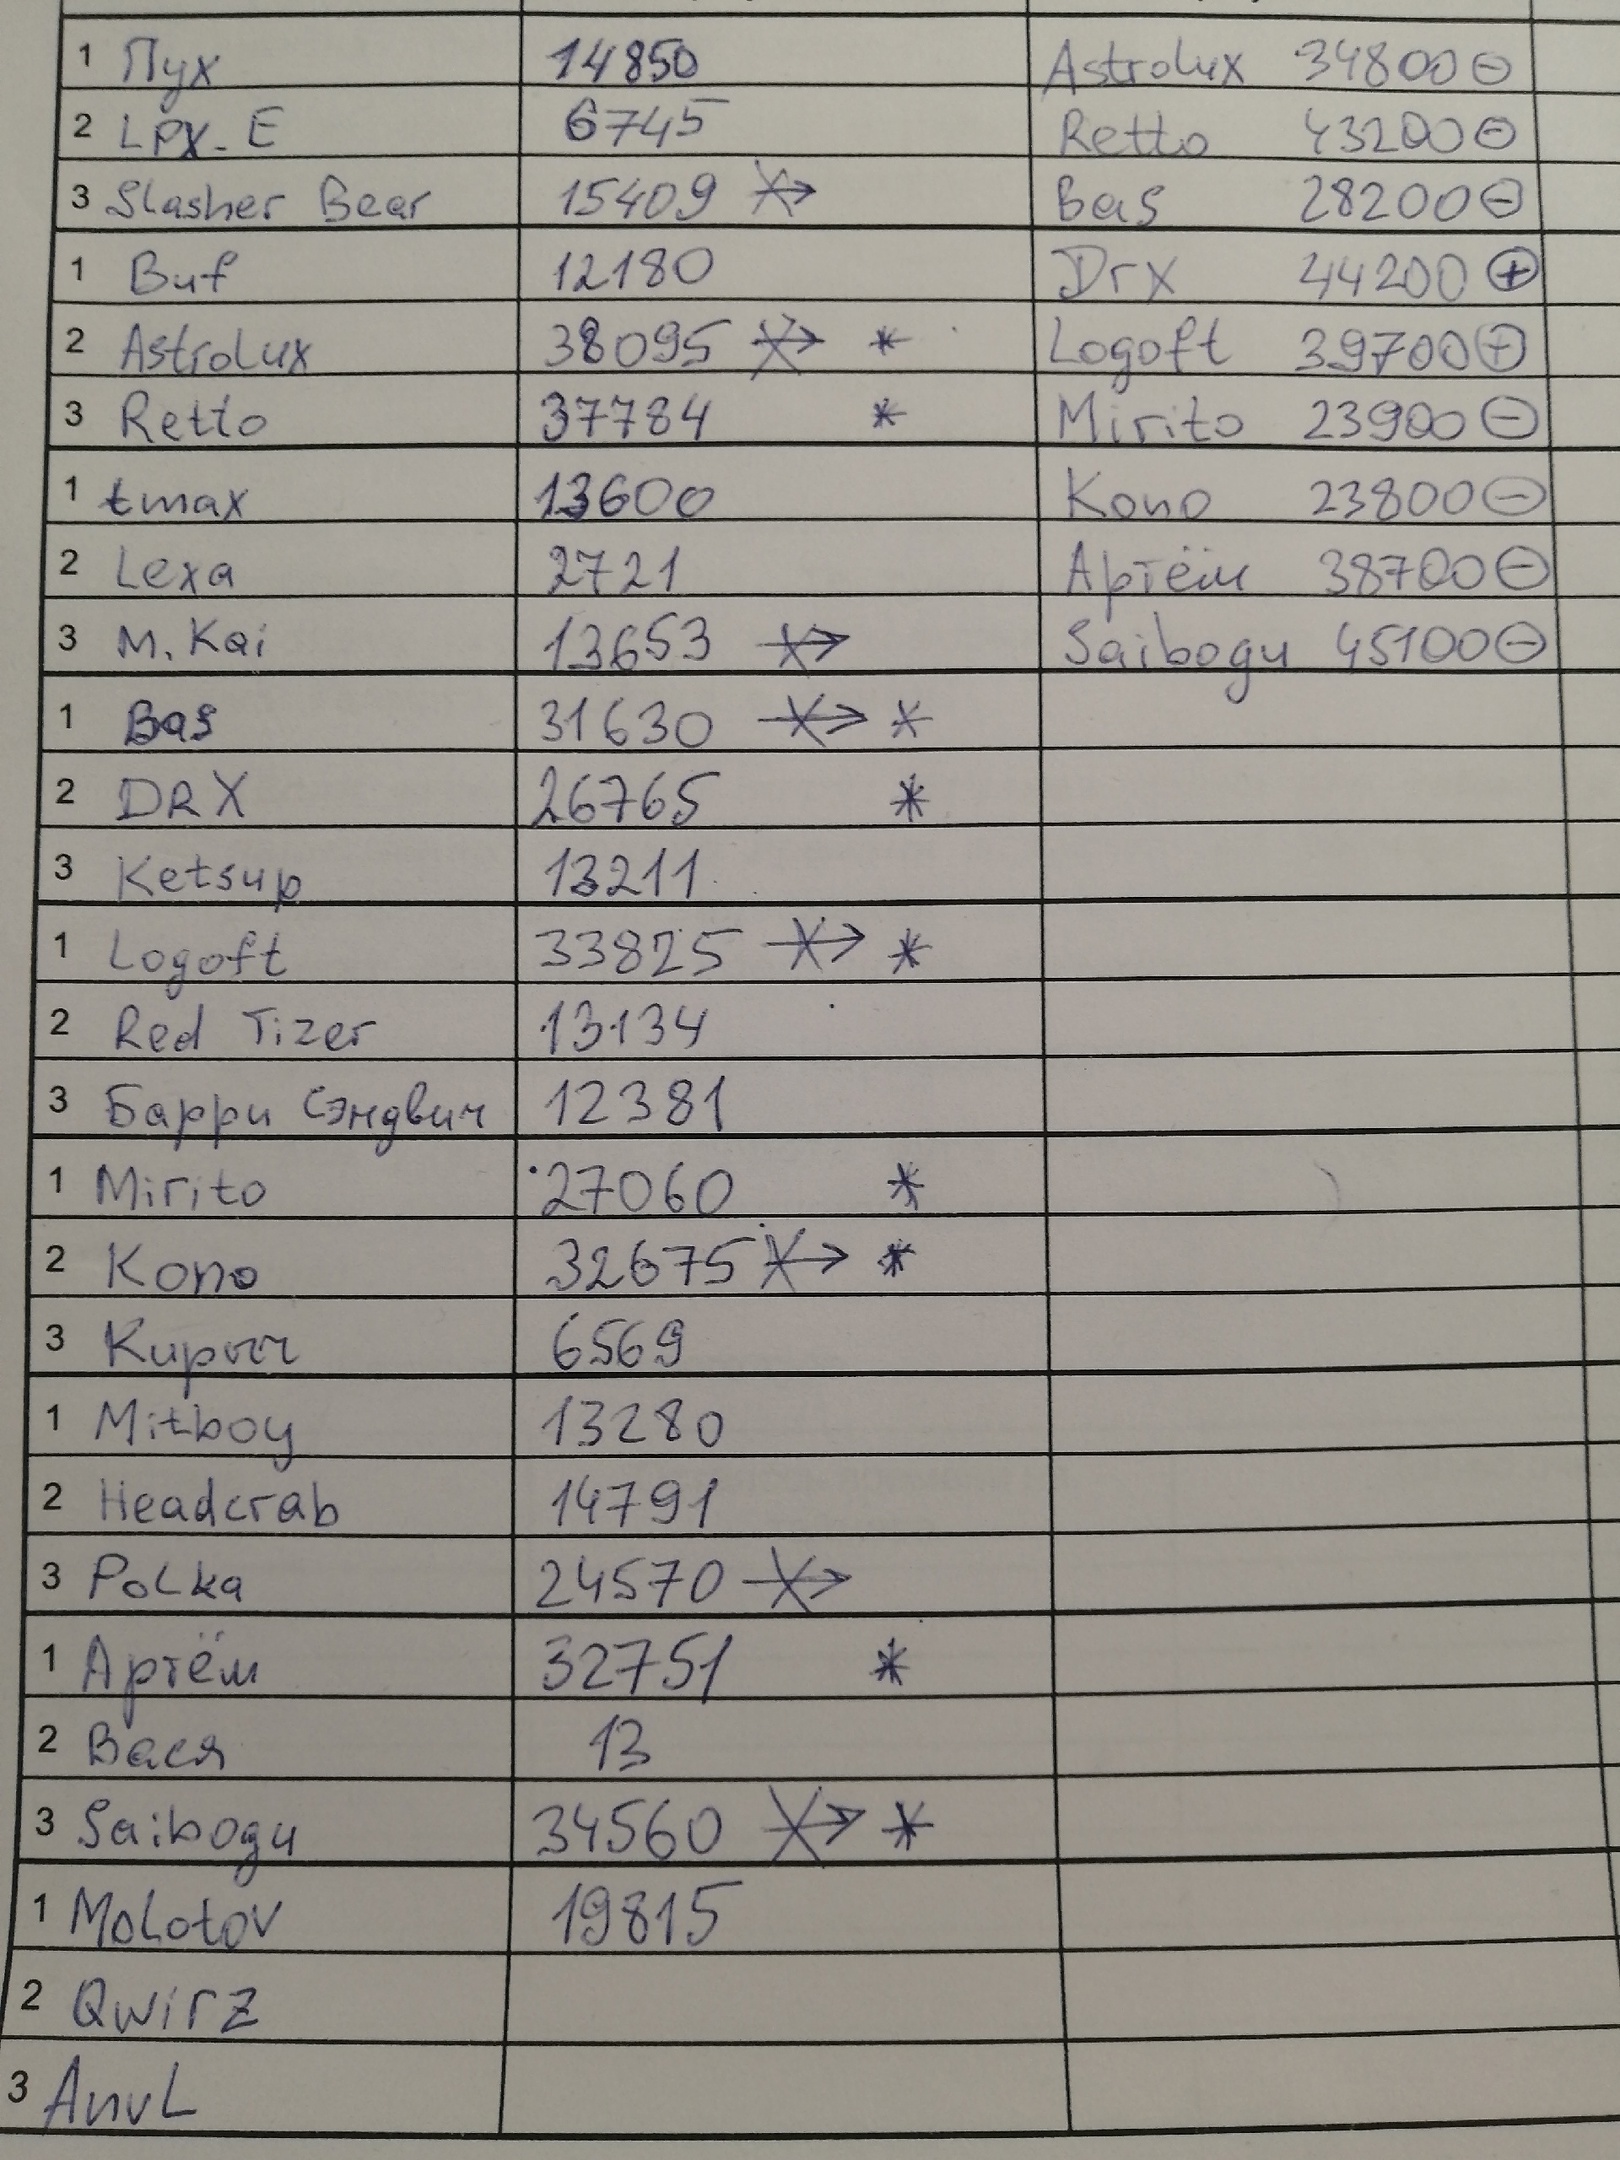 1 Пух 14850 Astrolux 34800 ⊖
2 LPX-E 6745 Retto 43200 ⊖
3 Slasher Bear 15409 Bas 28200 ⊖
1 Buf 12180 DrX 44200 ⊕
2 Astrolux 38095 * Logoft 39700 ⊕
3 Retto 37784 * Mirito 23900 ⊖
1 tmax 13600 Kono 23800 ⊖
2 Lexa 2721 Артём 38700 ⊖
3 M. Kai 13653 Saibogu 45100 ⊖
1 Bas 31630 *
2 DRX 26765 *
3 Ketsup 13211
1 Logoft 33825 *
2 Red Tizer 13134
3 Барри Сэндвич 12381
1 Mirito 27060 *
2 Kono 32675 *
3 6569
1 Mitboy 13280
2 Headcrab 14791
3 PoLka 24570
1 Артём 32751 *
2 Вася 13
3 Saibogu 34560 *
1 MoLotov 19815
2 Qwirz
3 AnvL